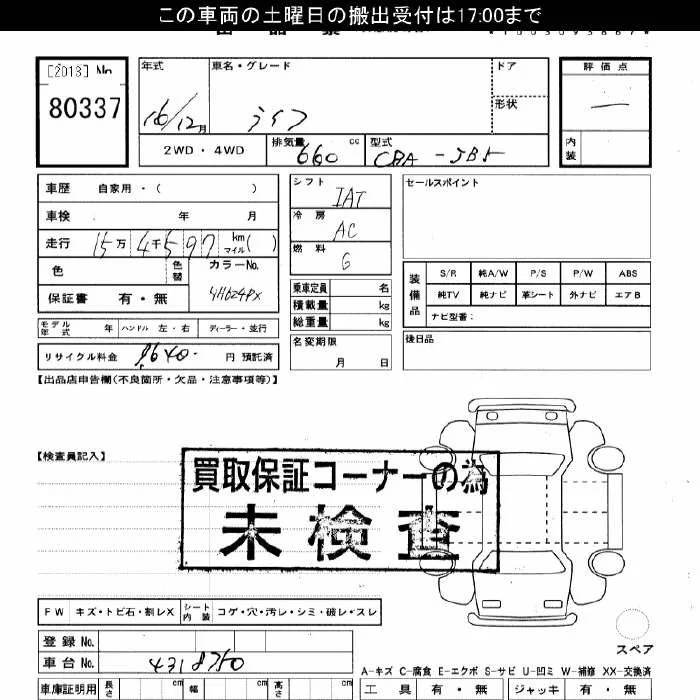 この車両の土曜日の搬出受付は17:00まで
[2013] No
80337
年式 車名・グレード ドア 評価点
16/12月 ライフ 形状 —
2WD・4WD 排気量 660 cc 型式 CBA-JB5 内装
車歴 自家用・( )
車検 年 月
走行 15万4千597 km マイル( )
色 色替 カラーNo.
保証書 有・無
シフト IAT
冷房 AC
燃料 G
乗車定員 名
積載量 kg
総重量 kg
名変期限
月 日
セールスポイント
装備品 S/R 純A/W P/S P/W ABS
純TV 純ナビ 革シート 外ナビ エアB
ナビ型番:
後日品
モデル年式 年 ハンドル 左・右 ディーラー・並行
リサイクル料金 9640- 円 預託済
【出品店申告欄(不良箇所・欠品・注意事項等)】
【検査員記入】
買取保証コーナーの為
未検査
FW キズ・トビ石・割レX シート内装 コゲ・穴・汚レ・シミ・破レ・スレ
登録No.
車台No. 4318750
車庫証明用 長さ cm 幅 cm 高さ cm
スペア
A-キズ C-腐食 E-エクボ S-サビ U-凹ミ W-補修 XX-交換済
工具 有・無 ジャッキ 有・無